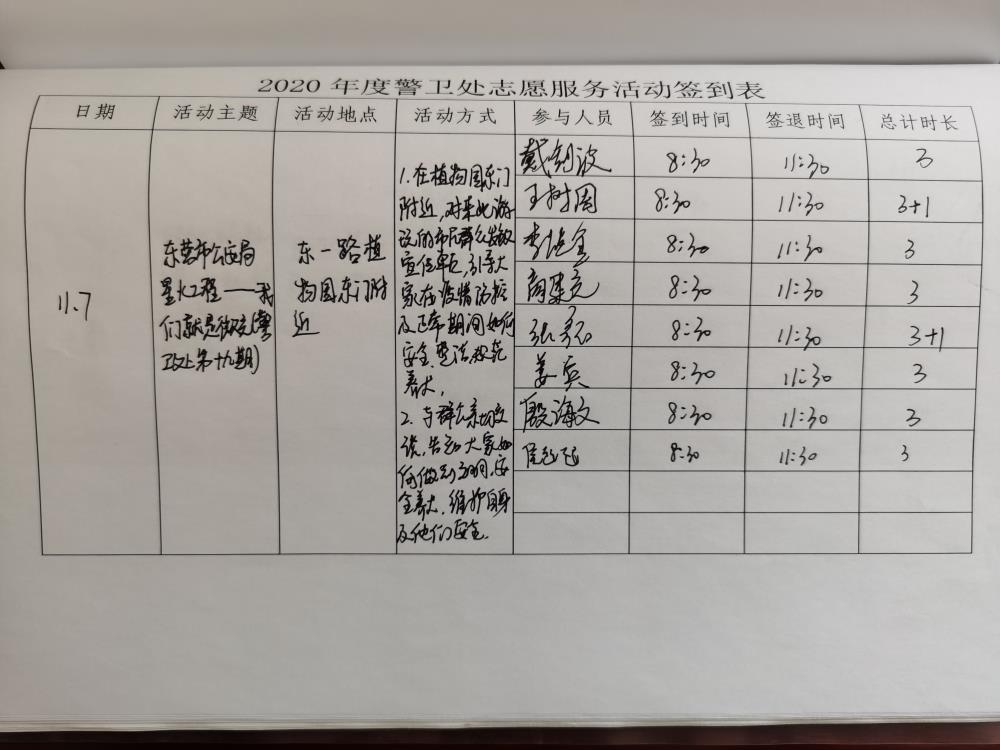 2020年度警卫处志愿服务活动签到表
日期 活动主题 活动地点 活动方式 参与人员 签到时间 签退时间 总计时长
11.7
东营市公安局
星火工程——我
们就是微光(警
卫处第十九期)
东一路植
物园东门附
近
1.在植物园东门
附近,对来此游
玩的市民群众发放
宣传单页,引导大
家在疫情防控
及正常期间如何
安全、守法、规范
养犬。
2.与群众亲切交
谈,告知大家如
何做到文明、安
全养犬,维护自身
及他们安全.
戴 波 8:30 11:30 3
王树周 8:30 11:30 3+1
李 金 8:30 11:30 3
商 8:30 11:30 3
张 8:30 11:30 3+1
姜兵 8:30 11:30 3
殷海文 8:30 11:30 3
8:30 11:30 3